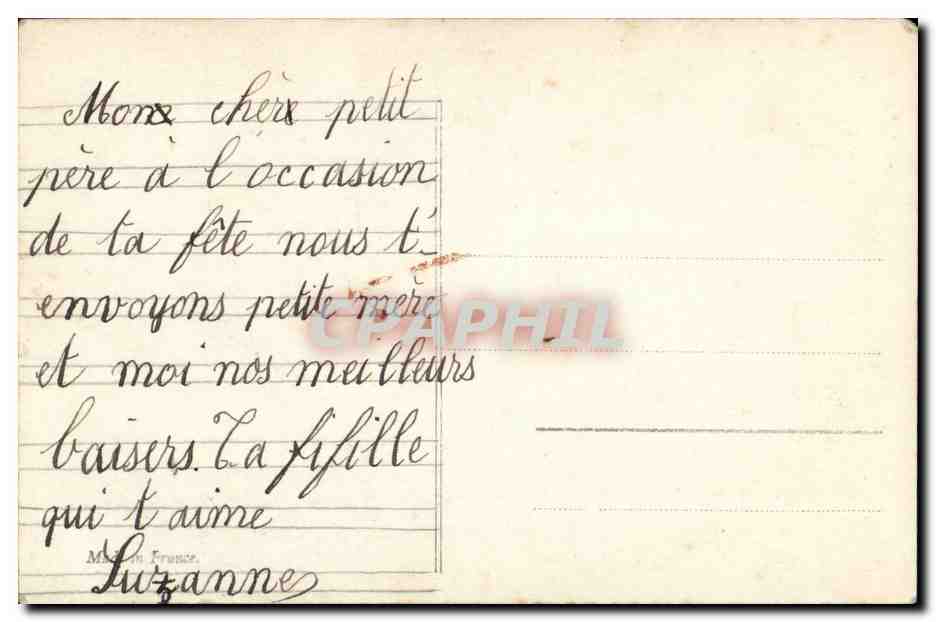 Mon chèr petit
père à l'occasion
de ta fête nous t'-
envoyons petite mère
et moi nos meilleurs
baisers. Ta fifille
qui t'aime
Made in France.
Suzanne
CPAPHIL